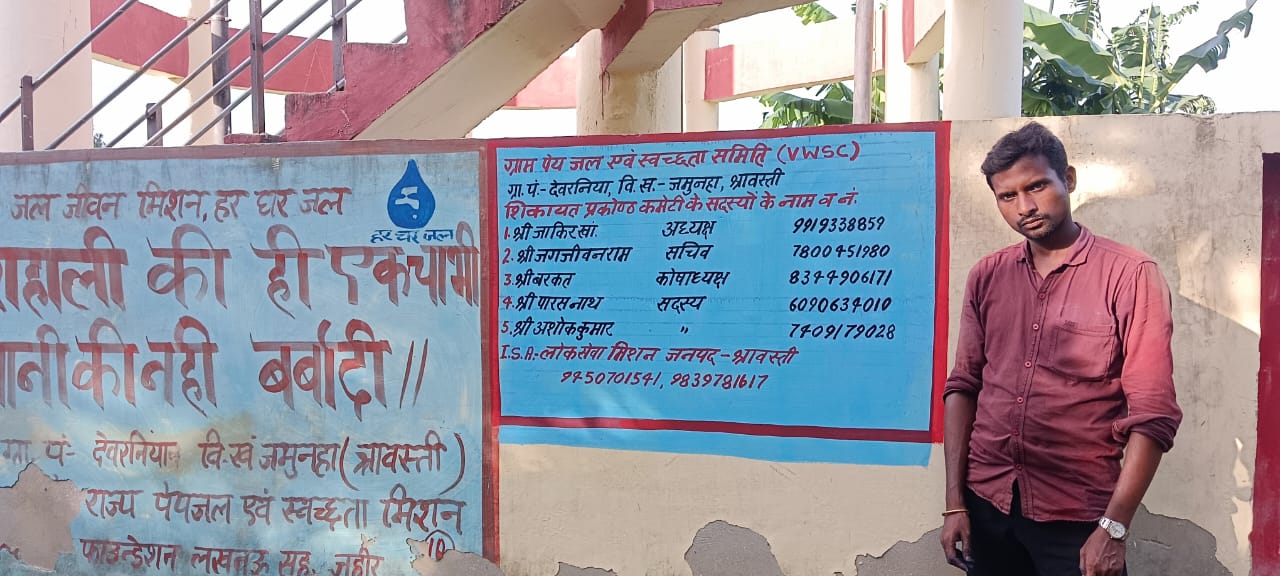 जल जीवन मिशन, हर घर जल
हर घर जल
की ही एकचाभी
की नही बर्बादी //
ग्रा. पं- देवरनियां वि.खं जमुनहा (श्रावस्ती)
राज्य पेयजल एवं स्वच्छता मिशन
फाउन्डेशन लखनऊ सह. जहीर
ग्राम पेय जल एवं स्वच्छता समिति (VWSC)
ग्रा. पं.- देवरनिया, वि.ख.- जमुनहा, श्रावस्ती
शिकायत प्रकोष्ठ कमेटी के सदस्यों के नाम व नं.
1. श्री जाकिर सा. अध्यक्ष 9919338859
2. श्री जगजीवनराम सचिव 7800451980
3. श्री बरकत कोषाध्यक्ष 8344906171
4. श्री पारस नाथ सदस्य 6090634010
5. श्री अशोक कुमार " 7409179028
I.S.A:- लोकसेवा मिशन जनपद - श्रावस्ती
9450701541, 9839781617